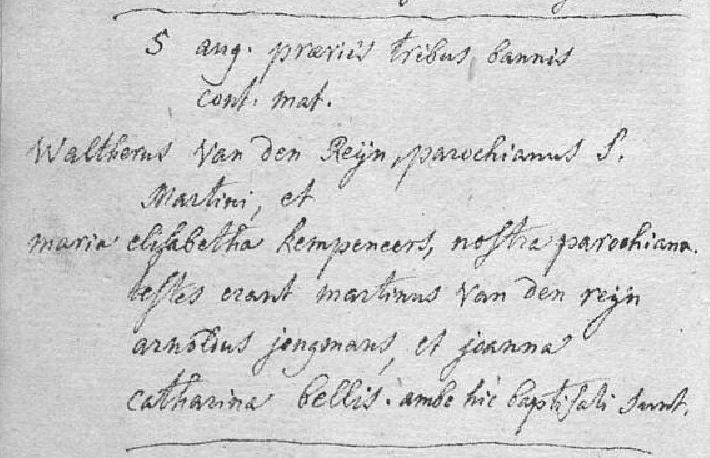 5 aug. præviis tribus bannis
cont. mat.
Waltherus Van den Reijn, parochianus S.
Martini, et
maria elisabetha kempeneers, nostra parochiana.
testes erant martinus Van den reijn
arnoldus jongmans, et joanna
catharina bellis. ambo hic baptisati sunt.